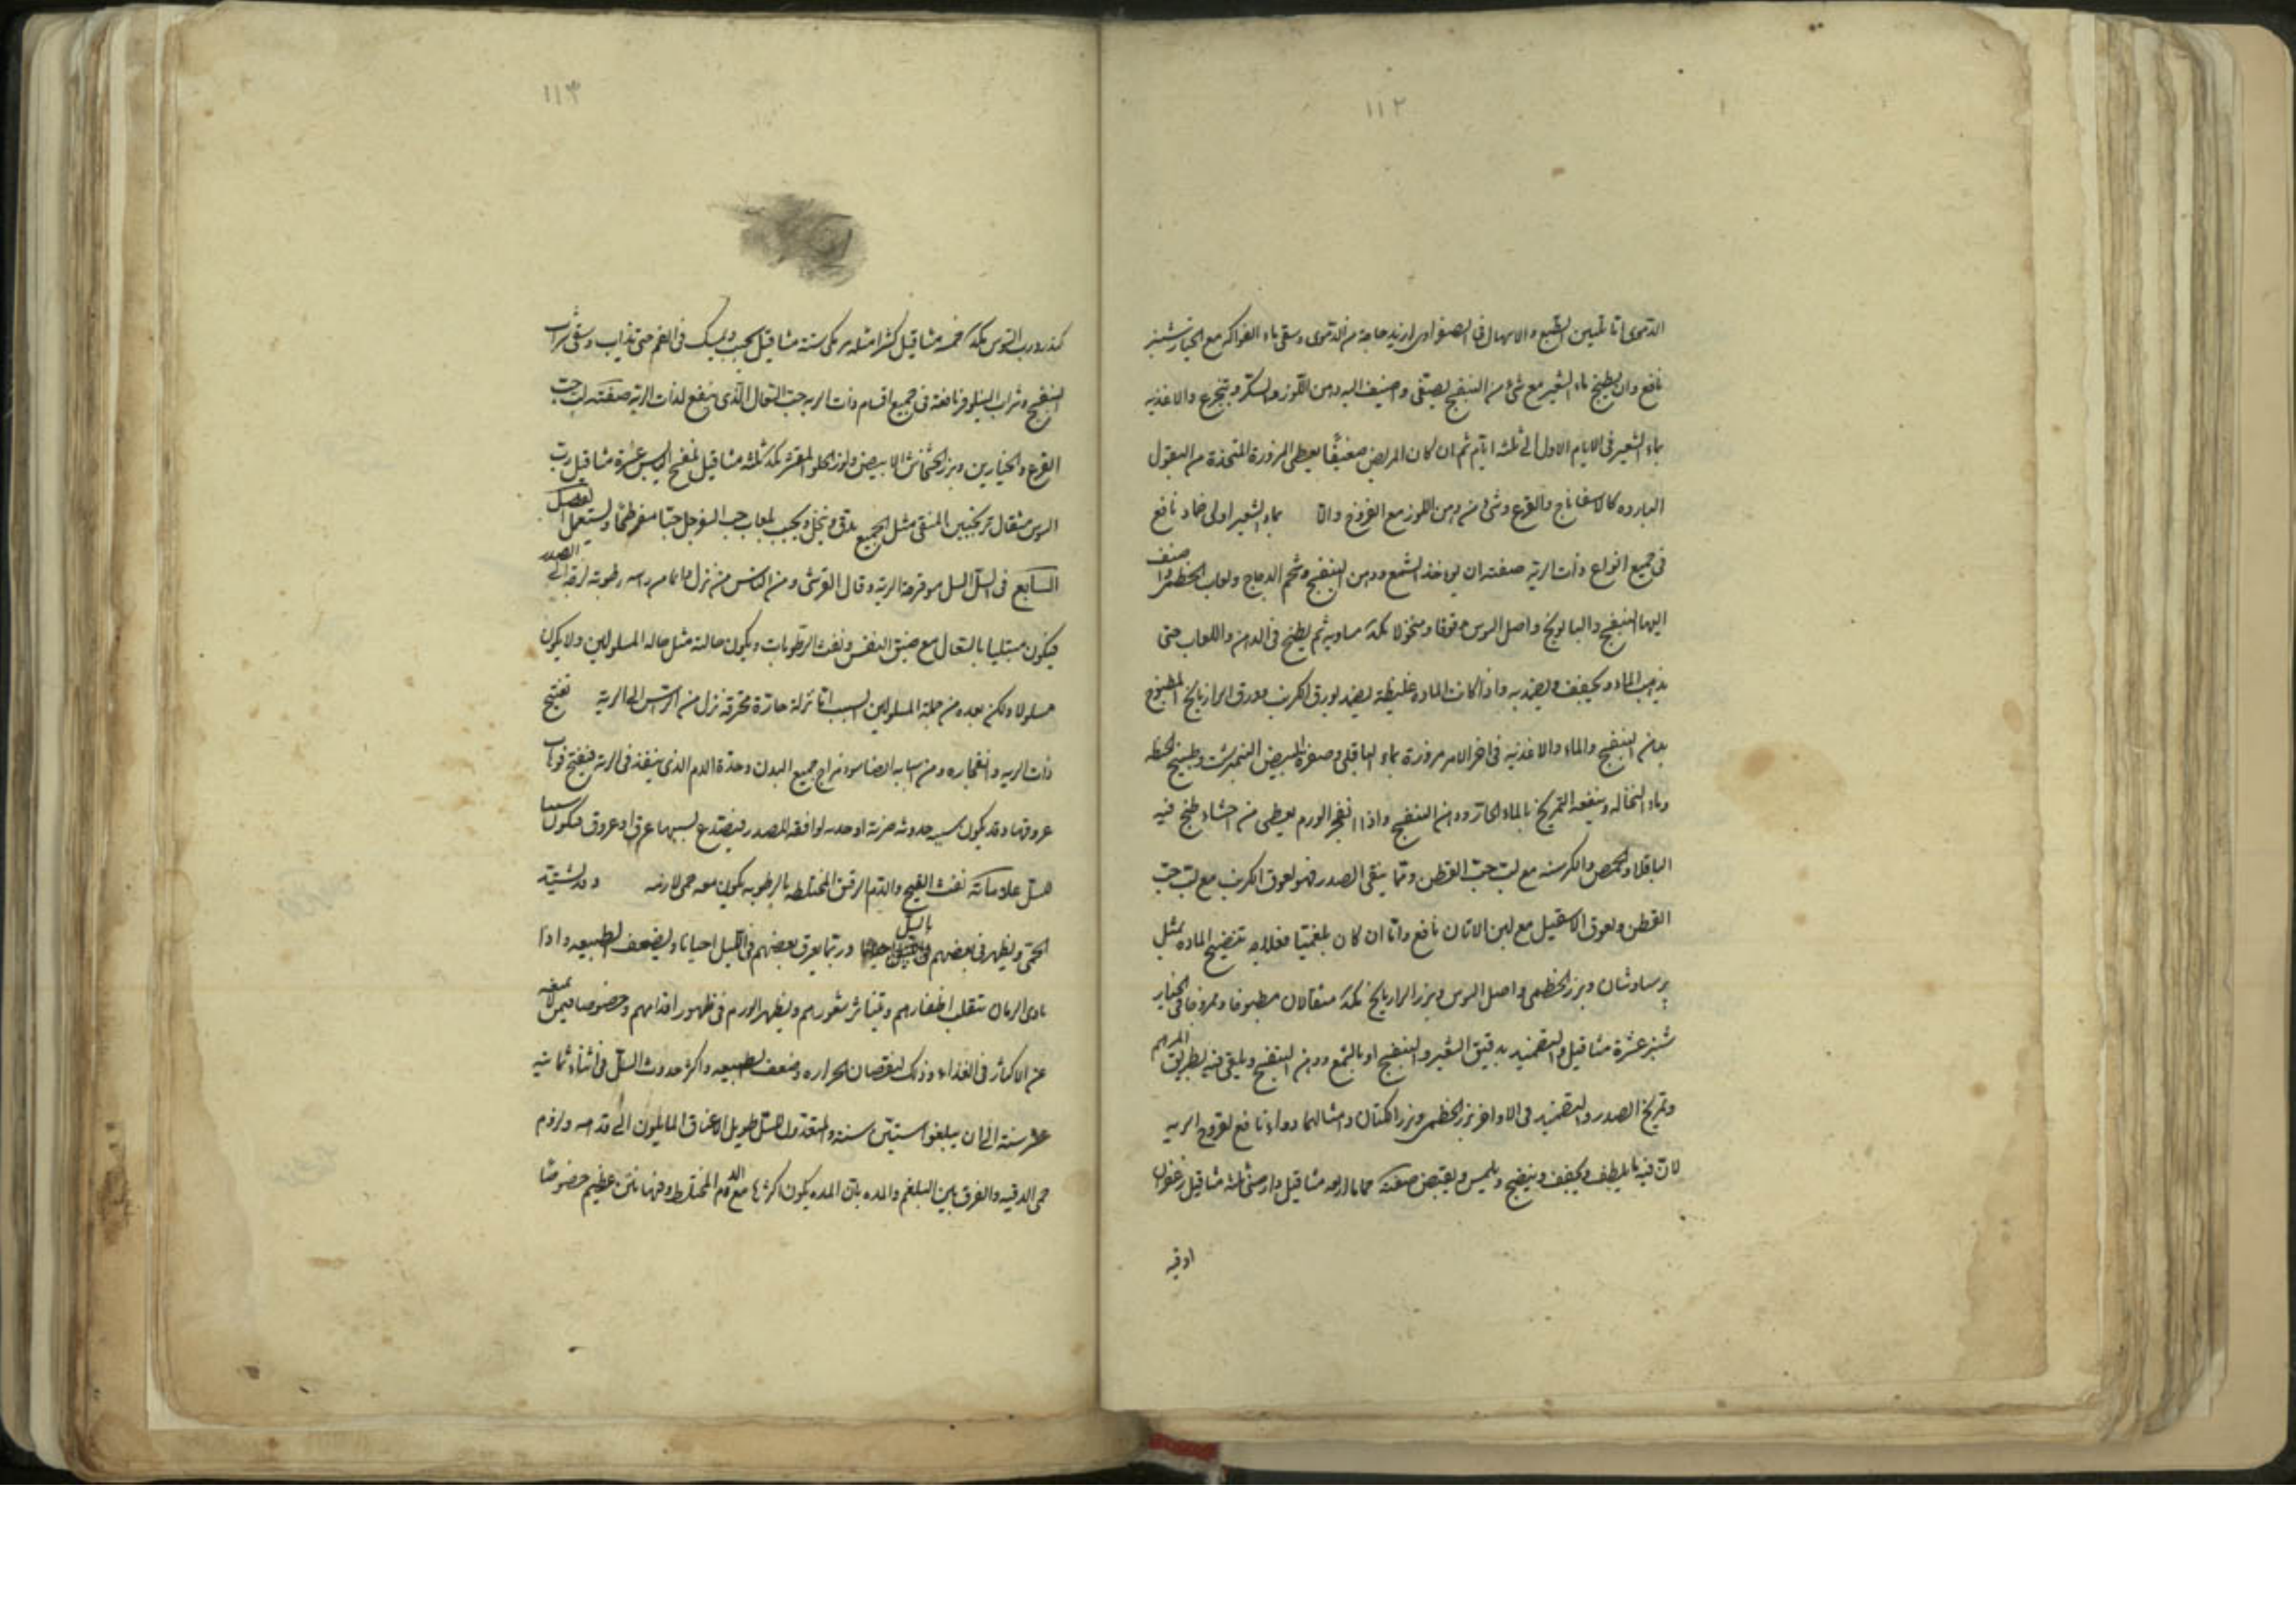 ١١٢
الدموى اما تليين الطبع والاسهال فى الصفراوى ازيد حاجة من الدموى وسقى ماء الفواكه مع الخيارشنبر
نافع وان يطبخ ماء الشعير مع شئ من البنفسج يصفى ويضيف اليه دهن اللوز والسكر ويتجرع والاغذيه
ماء الشعير فى الايام الاول الى ثلثه ايام ثم ان كان المريض ضعيفا يعطى المزورة المتخذة من البقول
البارده كالاسفاناج والقرع وشئ من دهن اللوز مع الفروج واما ماء الشعير اولى ضماد نافع
فى جميع انواع ذات الريه صفته ان يوخذ الشمع ودهن البنفسج وشحم الدجاج ولعاب الخطمى
اليها البنفسج والبابونج واصل السوس مدقوقا ومنخولا مكد مساويه ثم يطبخ فى الدهن واللعاب حتى
يذهب الماء ويجفف ويضمد به واذا كانت الماده غليظه يضمد بورق الكرنب وورق الرازيانج المطبوخ
بدهن البنفسج والماء والاغذيه فى اخر الامر مزورة بماء الباقلى وصفرة البيض النيمبرشت وطبيخ الحنطه
وماء النخاله وينفعه التمريخ بالماء الحار ودهن البنفسج واذا انفجر الورم يعطى من احشاء طبخ فيه
الباقلاء والحمص والكرسنه مع لب حب القطن ومما ينقى الصدر فهو لعوق الكرنب مع لب حب
القطن ولعوق الاسقيل مع لبن الاتان نافع واما ان كان بلغميا فعلاجه تنضيج الماده بمثل
پرسياوشان وبزر الخطمى واصل السوس وبزر الرازيانج مكد مثقالان مطبوخا وممروخا فى الخيار
شنبر عشرة مثاقيل والتضميد بدقيق الشعير والبنفسج او بالشمع ودهن البنفسج ويلقى فيه بطريق المرهم
وتمريخ الصدر والتضميد فى الاواخر بزر الخطمى وبزر الكتان وامثالهما دواء نافع لقروح الريه
لان فيه ما يلطف ويجفف وينضج ويلمس ويقبض صفته حماما اربعه مثاقيل دارصينى ثلثه مثاقيل زعفران
اوقيه
١١٣
كندر ورب السوس مكد خمسه مثاقيل كثيرا مثله مر مكى سته مثاقيل يحبب ويمسك فى الفم حتى يذاب وسقى شراب
البنفسج وشراب النيلوفر نافعة فى جميع اقسام ذات الريه حب السعال الذى ينفع لذات الريه صفته لب حب
القرع والخيارين وبزر الخشخاش الابيض ولوز الحلو المقشر مكد ثلثه مثاقيل بنفسج اليابس عشرة مثاقيل رب
السوس مثقال ترنجبين المنقى مثل الجميع يدق وينخل ويحبب بلعاب حب السفرجل حبا مفرطحا ويستعمل الفصل
السابع فى السل السل هو قرحة الريه وقال القرشى ومن الناس من نزل دائما من راسه رطوبه ردية الى الصدر
فيكون مبتليا بالسعال مع ضيق النفس ونفث الرطوبات ويكون حالته مثل حالة المسلولين ولا يكون
مسلولا ولكن يعده من جملة المسلولين السبب اما نزلة حارة محرقه نزل من الراس الى الريه تفتح
ذات الريه وانفجاره ومن اسبابه ايضا سوء مزاج جميع البدن وحدة الدم الذى ينفذ فى الريه فيفتح فوهات
عروقها وقد يكون سبب حدوثه ضربة او صدمه لوافقه للصدر فيتصدع بسببها عرق او عروق فيكون سببا
للسل علاماته نفث القيح والدم الرقيق المختلطه بالرطوبه ويكون معه حمى لازمه وقد يشتد
الحمى ويظهر فى بعضهم بالليل وربما يعرق بعضهم فى الليل احيانا ويضعف الطبيعه واذا
تمادى الزمان تنقلب اظفارهم وتيناثر شعورهم ويظهر الورم فى ظهور اقدامهم وخصوصا فيمن
عن الاكثار فى الغذاء وذلك لنقصان الحراره وضعف الطبيعه واكثر حدوث السل فى اثناء ثمانيه
عشر سنة الى ان يبلغوا ستين سنة والمستعدون للسل طويل الاعناق المايلون الى قدام ولزوم
حمى الدقيه والفرق بين البلغم والمده بان المده يكون اكثرها مع الدم المختلط وفيها نتن عظيم خصوصا